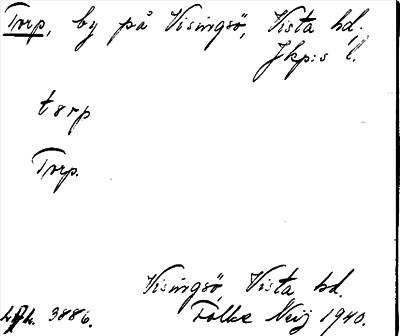 Torp, by på Visingsö, Vista hd,
Jkp:s l.
tørp
Torp.
Visingsö, Vista hd.
3886. Folke Neij 1940.